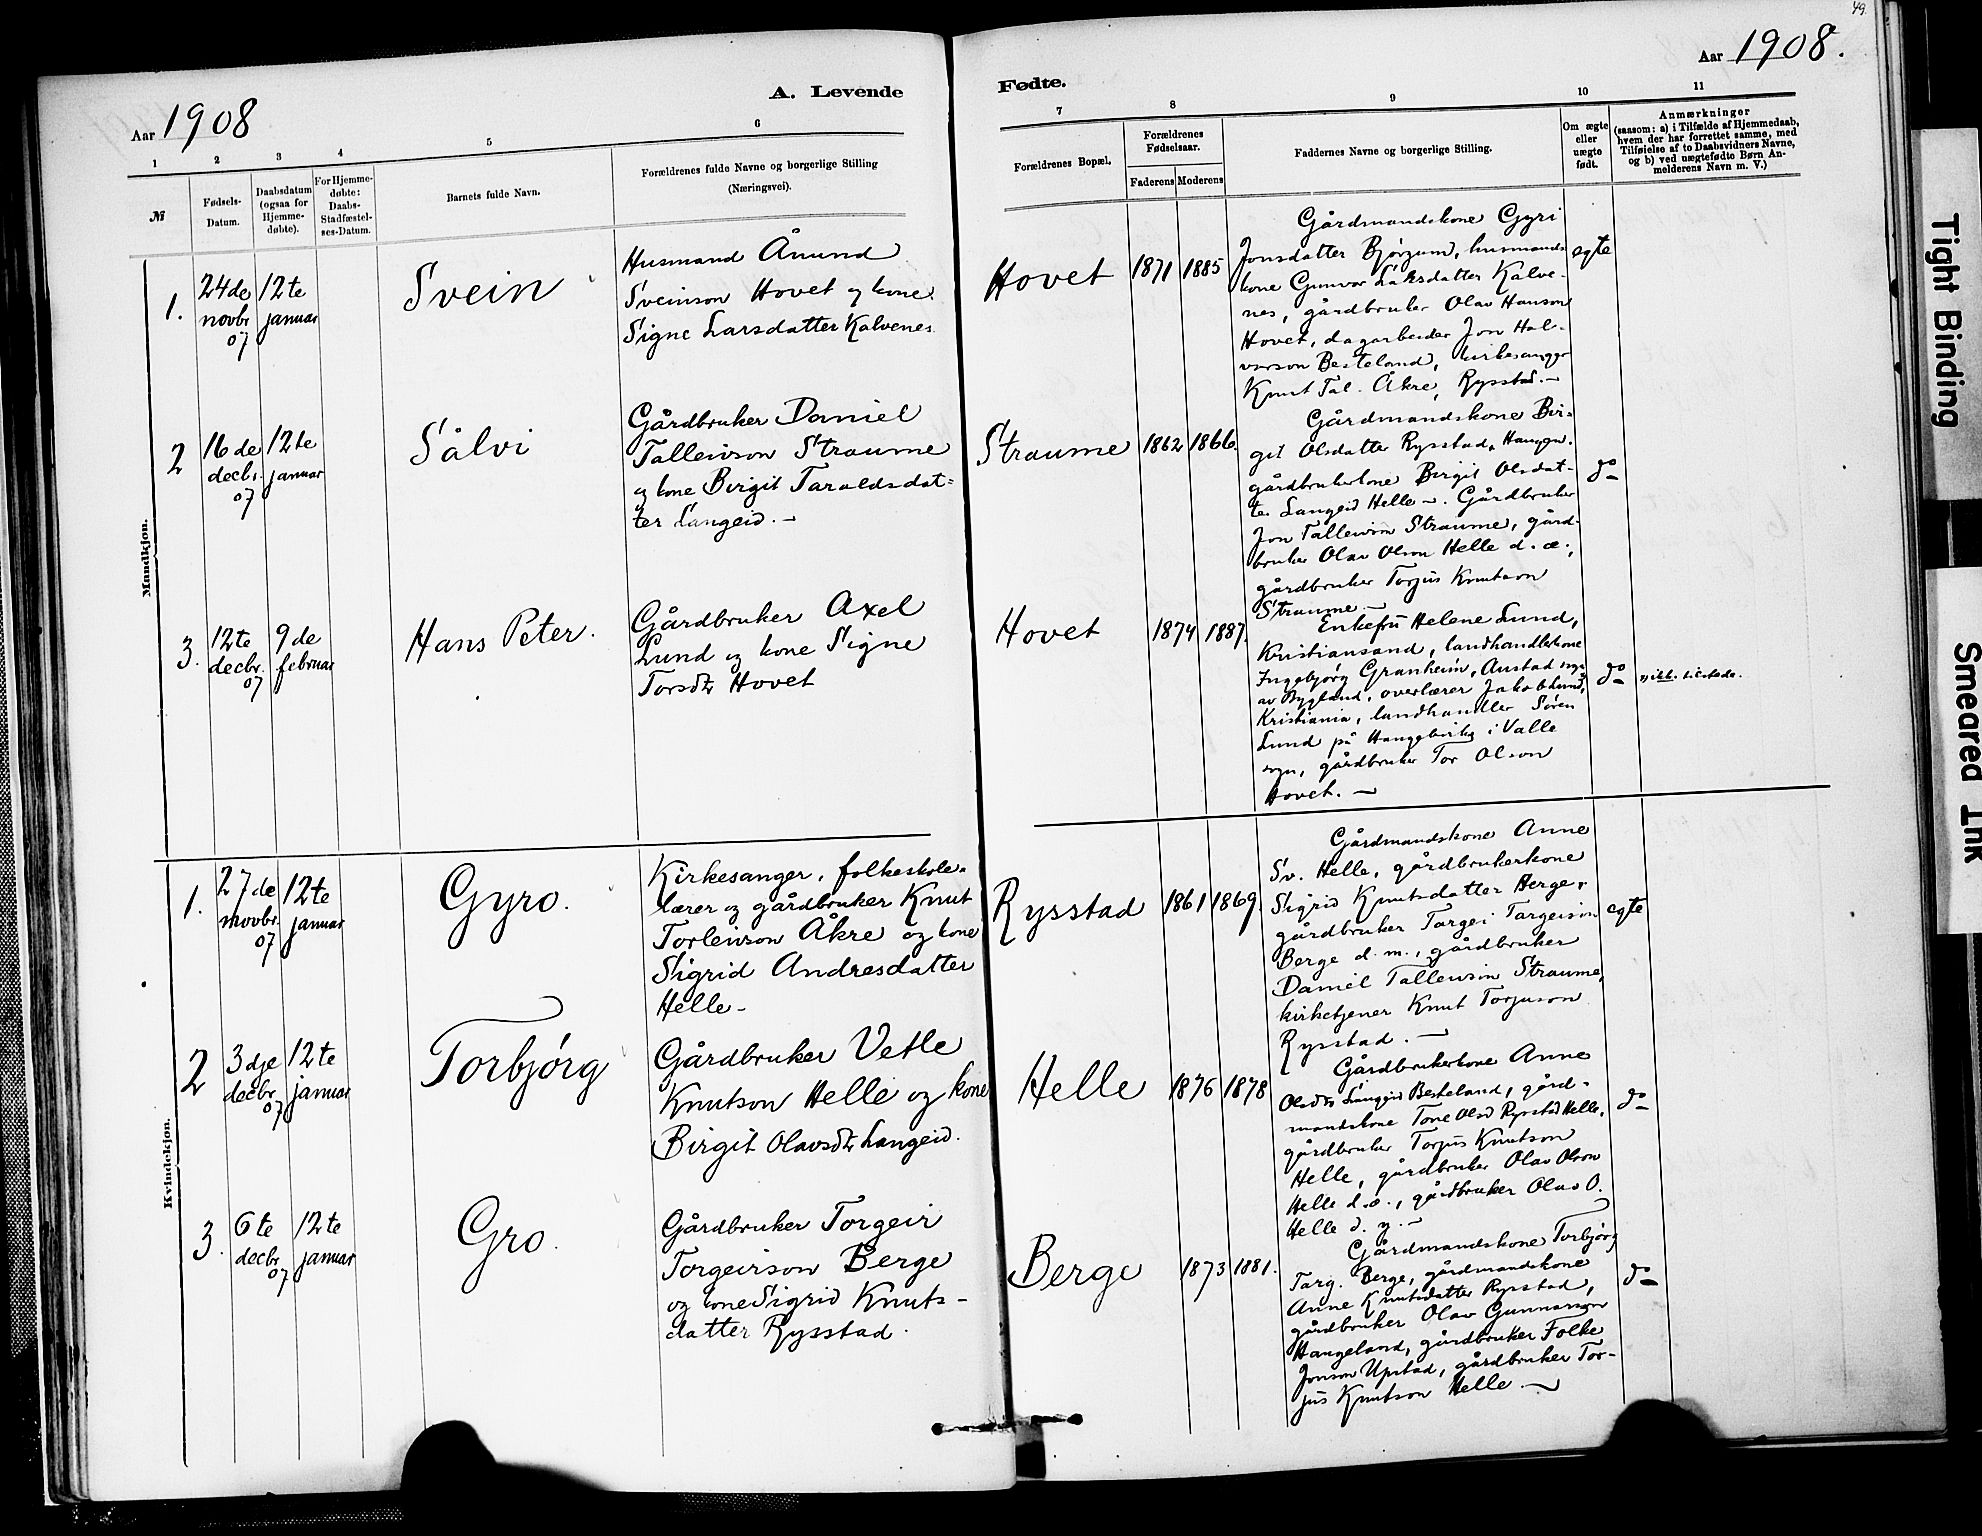 49.
Aar 1908
A. Levende
Fødte.
Aar 1908.
1
2
3
4
5
6
7
8
9
10
11
№
Fødsels-
Datum.
Daabsdatum
(ogsaa for
Hjemme-
døbte).
For Hjemme-
døbte:
Daabs-
Stadfæstel-
ses-Datum.
Barnets fulde Navn.
Forældrenes fulde Navne og borgerlige Stilling
(Næringsvei).
Forældrenes Bopæl.
Forældrenes
Fødselsaar.
Faderens
Moderens
Faddernes Navne og borgerlige Stilling.
Om ægte
eller
uægte
født.
Anmærkninger
(saasom: a) i Tilfælde af Hjemmedaab,
hvem der har forrettet samme, med
Tilføielse af to Daabsvidners Navne,
og b) ved uægtefødte Børn An-
melderens Navn m. V.)
Mandkjøn.
1.
24de
novbr
07
12te
januar
Svein
Husmand Ånund
Sveinson Hovet og kone
Signe Larsdatter Kalvenes
Hovet
1871
1885
Gårdmandskone Gyri
Jonsdatter Bjørgum, husmands
kone Gunvor Larsdatter Kalve-
nes, gårdbruker Olav Hanson
Hovet, dagarbeider Jon Hal-
vorson Besteland, kirkesanger
Knut Tal. Åkre, Rysstad.-
egte
2
16de
decbr.
07
12te
januar
Sålvi
Gårdbruker Daniel
Talleivson Straume
og kone Birgit Taraldsdat=
ter Langeid. -
Straume
1862
1866.
Gårdmandskone Bir=
git Olsdatter Rysstad,
gårdbrukerkone Birgit Olsdat-
ter Langeid Helle -. Gårdbruker
Jon Talleivson Straume, gård-
bruker Olav Olson Helle d. æ.,
gårdbruker Torjus Knutson
Straume -
do
3.
12te
decbr.
07
9de
februar
Hans Peter.
Gårdbruker Axel
Lund og kone Signe
Torsdtr Hovet
Hovet
1874
1887.
Enkefru Helene Lund,
Kristiansand, landhandlerkone
Ingebjørg Granheim, Austad sogn
av Bygland, overlærer Jakob Lund,
Kristiania, landhandler Søren
Lund på i Valle
sogn, gårdbruker Tor Olson
Hovet. -
do
ikke tilstede.
Kvindekjøn.
1.
27de
novbr.
07
12te
januar
Gyro.
Kirkesanger, folkeskole-
lærer og gårdbruker Knut
Torleivson Åkre og kone
Sigrid Andresdatter
Helle-
Rysstad
1861
1869
Gårdmandskone Anne
Sv. Helle, gårdbrukerkone
Sigrid Knutsdatter Berge,
gårdbruker Targei Targeison
Berge d. m., gårdbruker
Daniel Talleivson Straume,
kirketjener Knut Torjuson
Rysstad. -
egte
2
3dje
decbr
07
12te
januar
Torbjórg
Gårdbruker Vetle
Knutson Helle og kone
Birgit Olavsdtr Langeid.
Helle
1876
1878
Gårdbrukerkone Anne
Olsdtr Langeid Besteland, gård-
mandskone Tone Olsd Rysstad Helle,
gårdbruker Torjus Knutson
Helle, gårdbruker Olav Olson
Helle d.æ., gårdbruker Olav O.
Helle d. y. -
do
3.
6te
decbr
07
12te
januar
Gro.
Gårdbruker Torgeir
Torgeirson Berge
og kone Sigrid Knuts-
datter Rysstad.
Berge
1873
1881.
Gårdmandskone Torbjørg
Targ. Berge, gårdmandskone
Anne Knutsdatter Rysstad,
gårdbruker Olav Gunnarson
Haugeland, gårdbruker Folke
Jonson Upstad, gårdbruker Tor-
jus Knutson Helle. -
do
Tight Binding
Smeared Ink